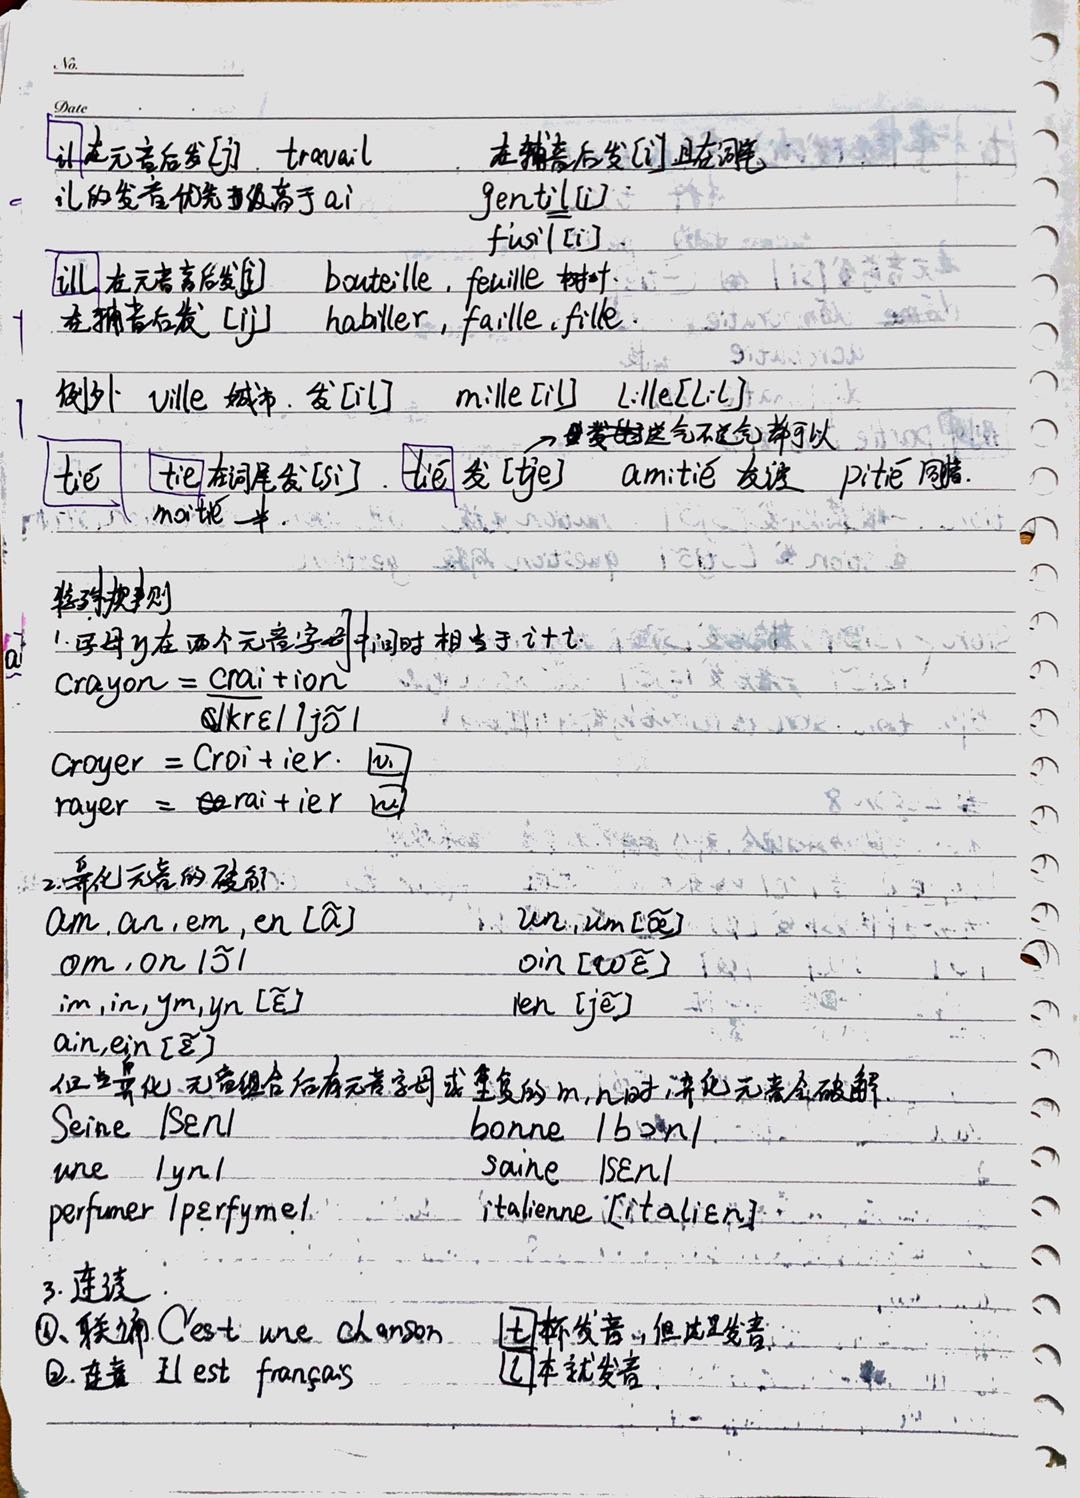 No.
Date
il 在元音后发[j]. travail 在辅音后发[i]且在词尾
il的发音优先级高于ai gentil[i]
fusil[i].
ill 在元音后发[j] bouteille, feuille 树叶.
在辅音后发[ij] habiller, faille, fille.
例外 ville 城市. 发[il] mille[il] Lille[Lil]
→ 送气不送气都可以
tié tie在词尾发[si]. tié 发[tje] amitié 友谊 pitié 同情.
moitié 一半.
特殊规则
1. 字母y在两个元音字母中间时相当于i+i.
ai
crayon = crai+ion
|krɛ| |jɔ̃|
croyer = Croi+ier. vi
rayer = rai+ier
2. 鼻化元音的破解.
am, an, em, en [ã] un, um [œ̃]
om, on |ɔ̃| oin [wɛ̃]
im, in, ym, yn [ɛ̃] ien [jẽ]
ain, ein [ɛ̃]
但当鼻化元音组合后有元音字母或重复的m,n时,鼻化元音会破解.
Seine |Sɛn| bonne |bɔn|
une |yn| saine |Sɛn|
perfumer |pɛrfyme| italienne [italiɛn]
3. 连读.
①、联诵 C'est une chanson t 本不发音, 但这里发音
②. 连音 Il est français l 本就发音.